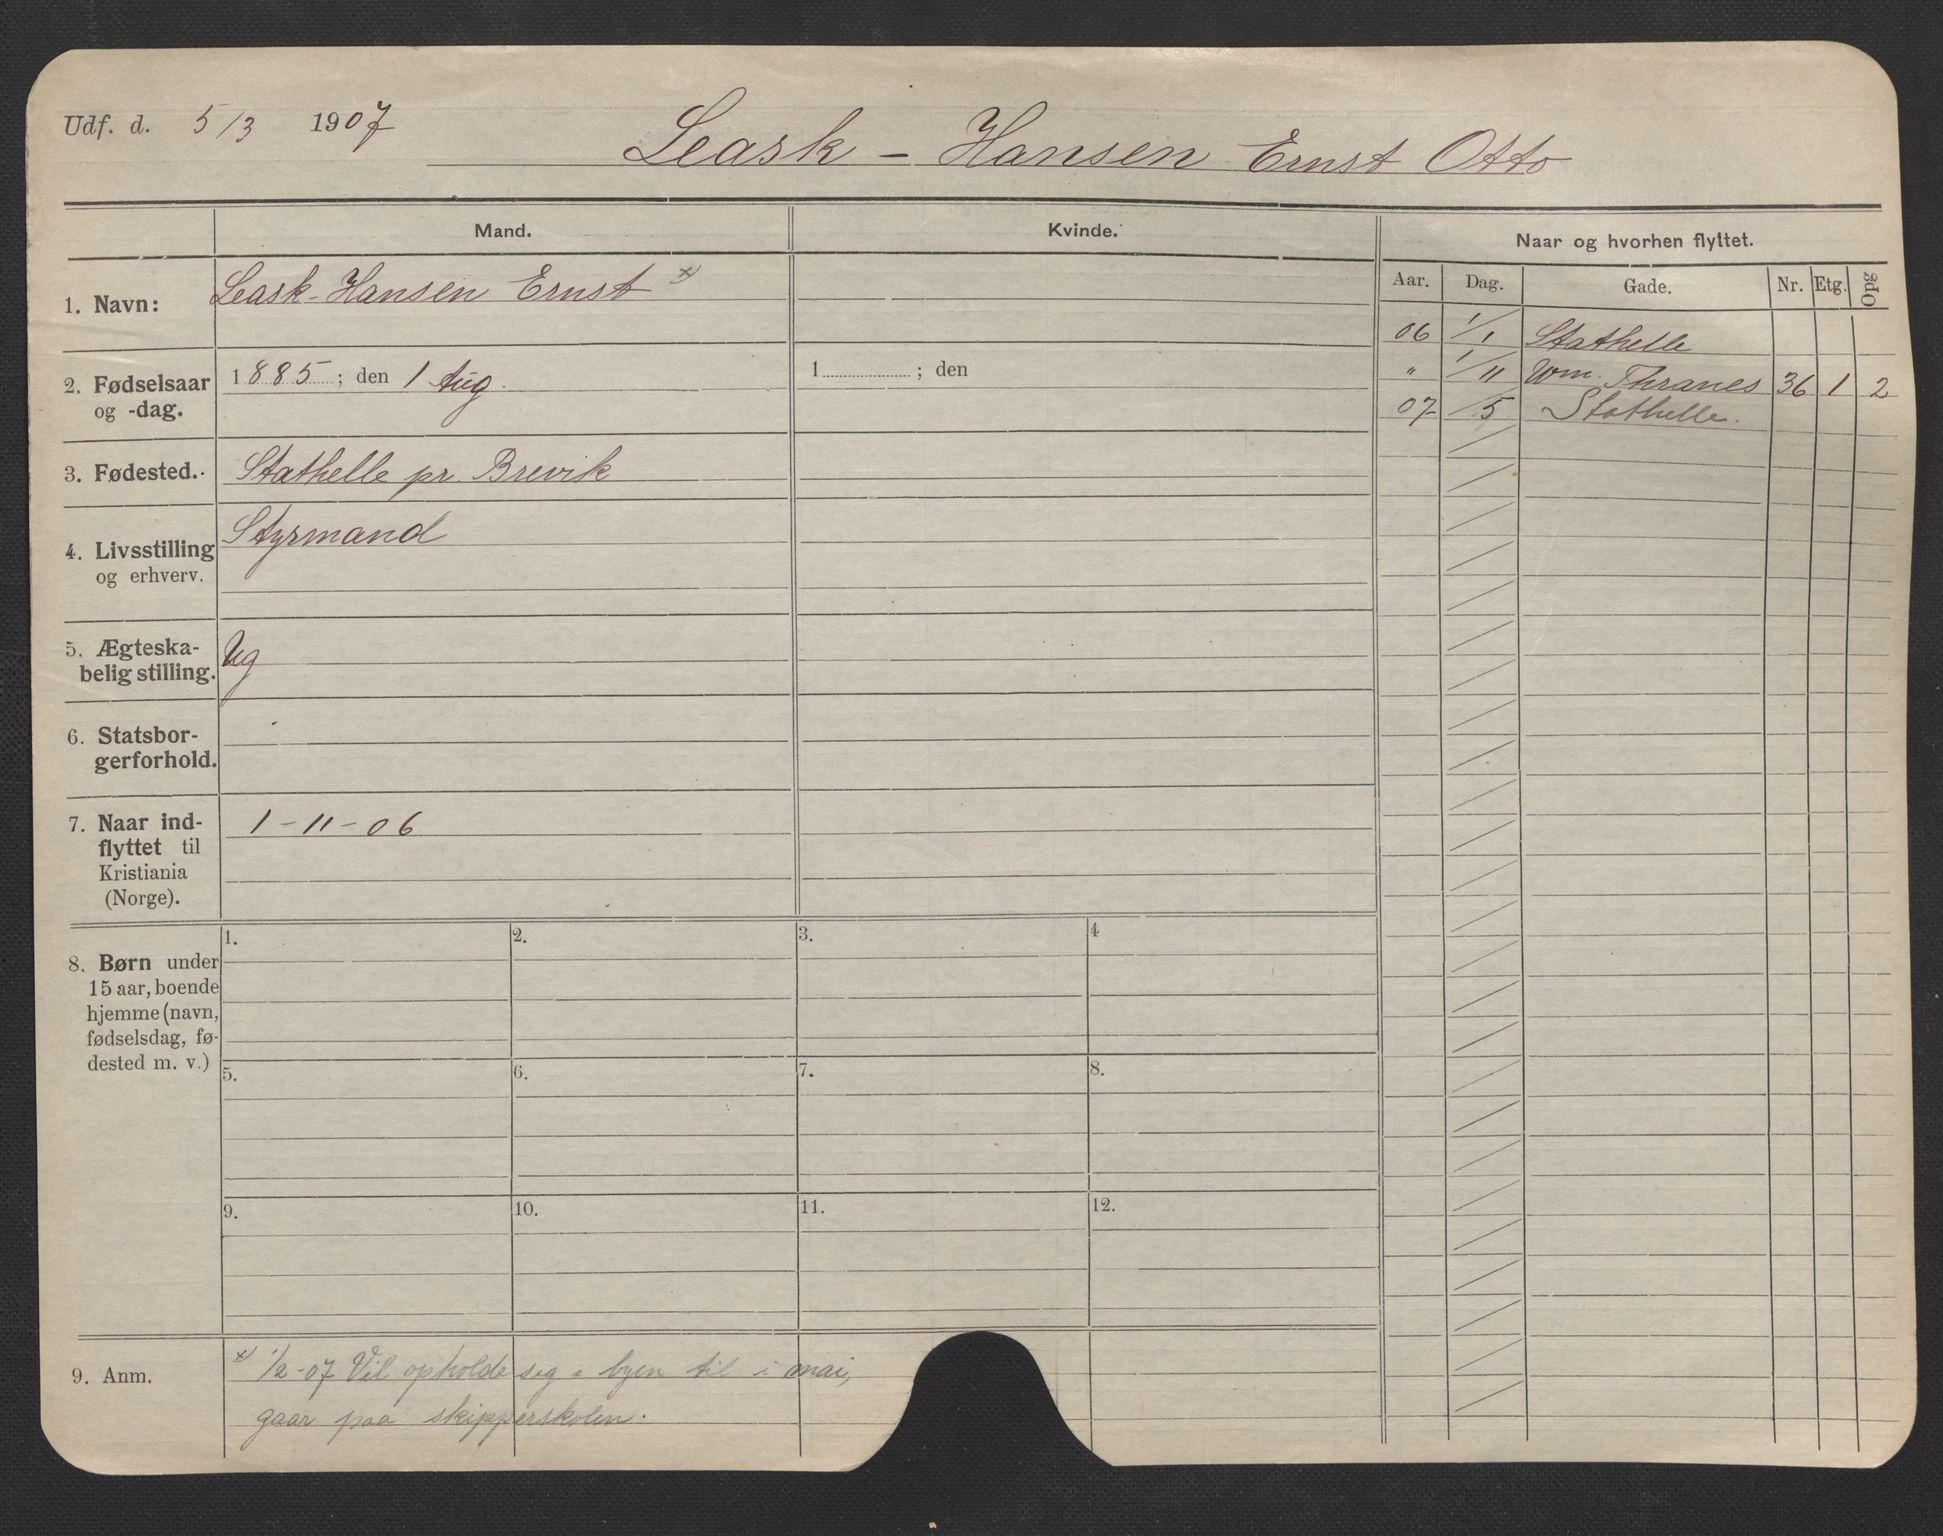 Udf. d. 5/3 1907
Leask - Hansen Ernst Otto
Mand.
Kvinde.
Naar og hvorhen flyttet.
Aar. Dag. Gade. Nr. Etg. Opg
06 1/1 Stathelle
" 1/11 Wm. Thranes 36 1 2
07 /5 Stathelle.
1. Navn: Leask-Hansen Ernst x)
2. Fødselsaar og -dag.
1885; den 1 Aug.
1 ; den
3. Fødested. Stathelle pr Brevik
4. Livsstilling og erhverv.
Styrmand
5. Ægteska-
belig stilling.
Ug
6. Statsbor-
gerforhold.
7. Naar ind-
flyttet til
Kristiania
(Norge).
1-11-06
8. Børn under
15 aar, boende
hjemme (navn,
fødselsdag, fø-
dested m. v.)
1. 2. 3. 4
5. 6. 7. 8.
9. 10. 11. 12.
9. Anm.
x) 1/2-07 Vil opholde sig i byen til i mai,
gaar paa skipperskolen.